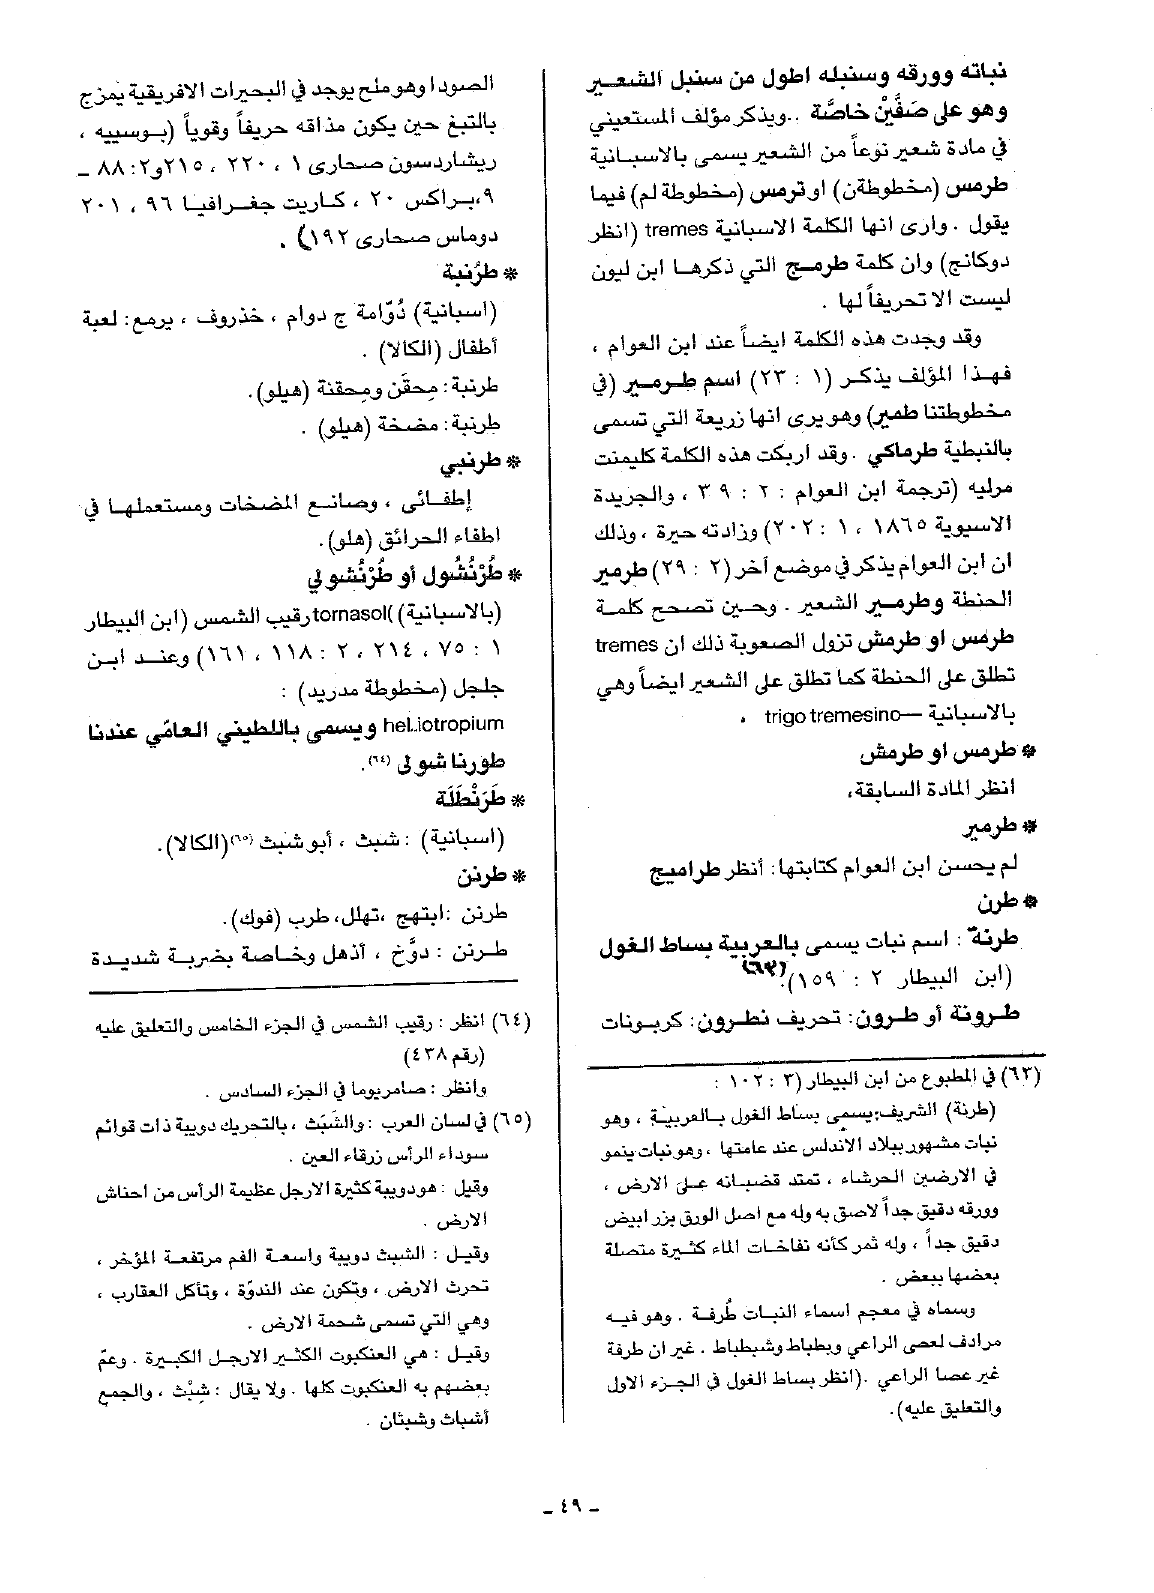 نباته وورقه وسنبله اطول من سنبل الشعير
وهو على صَفَّيْن خاصَّة ..ويذكر مؤلف المستعيني
في مادة شعير نوعاً من الشعير يسمى بالاسبانية
طرمس (مخطوطةن) او ترمس (مخطوطة لم) فيما
يقول . وارى انها الكلمة الاسبانية tremes (انظر
دوكانج) وان كلمة طرمج التي ذكرها ابن ليون
ليست الا تحريفاً لها .
وقد وجدت هذه الكلمة ايضاً عند ابن العوام ،
فهذا المؤلف يذكر (١ : ٢٣) اسم طرمير (في
مخطوطتنا طمير) وهو يرى انها زريعة التي تسمى
بالنبطية طرماكي . وقد اربكت هذه الكلمة كليمنت
مرليه (ترجمة ابن العوام : ٢ : ٣٩ ، والجريدة
الاسيوية ١٨٦٥ ، ١ : ٢٠٢) وزادته حيرة ، وذلك
ان ابن العوام يذكر في موضع آخر (٢ : ٢٩) طرمير
الحنطة وطرمير الشعير . وحين تصحح كلمة
طرمس او طرمش تزول الصعوبة ذلك ان tremes
تطلق على الحنطة كما تطلق على الشعير ايضاً وهي
بالاسبانية —trigo tremesino .
* طرمس او طرمش
انظر المادة السابقة،
* طرمير
لم يحسن ابن العوام كتابتها: أنظر طراميج
* طرن
طرنة : اسم نبات يسمى بالعربية بساط الغول
(ابن البيطار ٢ : ١٥٩)(٦٣).
طرونة أو طرون: تحريف نطرون: كربونات
(٦٣) في المطبوع من ابن البيطار (٣ : ١٠٢ :
(طرنة) الشريف: يسمى بساط الغول بالعربية ، وهو
نبات مشهور ببلاد الاندلس عند عامتها ، وهو نبات ينمو
في الارضين الحرشاء ، تمتد قضبانه على الارض ،
وورقه دقيق جداً لاصق به وله مع اصل الورق بزر ابيض
دقيق جداً ، وله ثمر كأنه نفاخات الماء كثيرة متصلة
بعضها ببعض .
وسماه في معجم اسماء النبات طُرفة . وهو فيه
مرادف لعصى الراعي وبطباط وشبطباط . غير ان طرفة
غير عصا الراعي .(انظر بساط الغول في الجزء الاول
والتعليق عليه).
الصودا وهو ملح يوجد في البحيرات الافريقية يمزج
بالتبغ حين يكون مذاقه حريفاً وقوياً (بوسييه ،
ريشاردسون صحارى ١ ، ٢٢٠ ، ٢١٥ و٢: ٨٨ ـ
٩، براكس ٢٠ ، كاريت جغرافيا ٩٦ ، ٢٠١
دوماس صحارى ١٩٢) .
* طرُنبة
(اسبانية) دُوّامة ج دوام ، خذروف ، يرمع: لعبة
أطفال (الكالا) .
طرنبة: مِحقَن ومِحقنة (هيلو).
طرنبة: مضخة (هيلو) .
* طرنبي
إطفائى ، وصانع المضخات ومستعملها في
اطفاء الحرائق (هلو).
* طُرْنُشُول أو طُرْنُشُولي
(بالاسبانية) (tornasol رقيب الشمس (ابن البيطار
١ : ٧٥ ، ٢١٤ ، ٢ : ١١٨ ، ١٦١) وعند ابن
جلجل (مخطوطة مدريد) :
heliotropium ويسمى باللطيني العامّي عندنا
طورنا شولى (٦٤).
* طَرَنْطَلَة
(اسبانية) : شبث ، أبو شبث (٦٥) (الكالا).
* طرنن
طرنن :ابتهج ،تهلل، طرب (فوك).
طرنن : دوَّخ ، أذهل وخاصة بضربة شديدة
(٦٤) انظر : رقيب الشمس في الجزء الخامس والتعليق عليه
(رقم ٤٣٨)
وانظر : صامريوما في الجزء السادس .
(٦٥) في لسان العرب : والشَّبَث ، بالتحريك دويبة ذات قوائم
سوداء الرأس زرقاء العين .
وقيل : هو دويبة كثيرة الارجل عظيمة الرأس من احناش
الارض .
وقيل : الشبث دويبة واسعة الفم مرتفعة المؤخر ،
تحرث الارض ، وتكون عند الندوّة ، وتأكل العقارب ،
وهي التي تسمى شحمة الارض .
وقيل : هي العنكبوت الكثير الارجل الكبيرة . وعمّ
بعضهم به العنكبوت كلها . ولا يقال : شِبْث ، والجمع
أشباث وشبثان .
ـ ٤٩ ـ